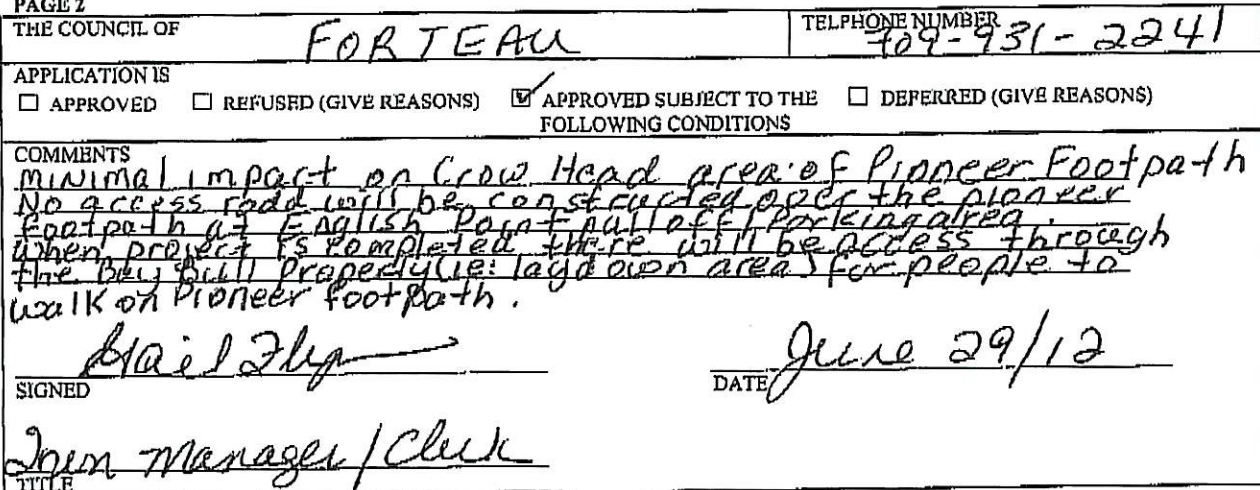 PAGE 2
THE COUNCIL OF FORTEAU TELPHONE NUMBER 709-931-2241
APPLICATION IS
☐ APPROVED ☐ REFUSED (GIVE REASONS) ☑ APPROVED SUBJECT TO THE FOLLOWING CONDITIONS ☐ DEFERRED (GIVE REASONS)
COMMENTS
MINIMAL impact on Crow Head area of Pioneer Footpath
No access road will be constructed over the pioneer
footpath at English Point pull off/Parking area.
When project is completed there will be access through
the Property (ie: laydown area) for people to
walk on Pioneer footpath.
Gail
SIGNED
DATE June 29/12
Town Manager/Clerk
TITLE